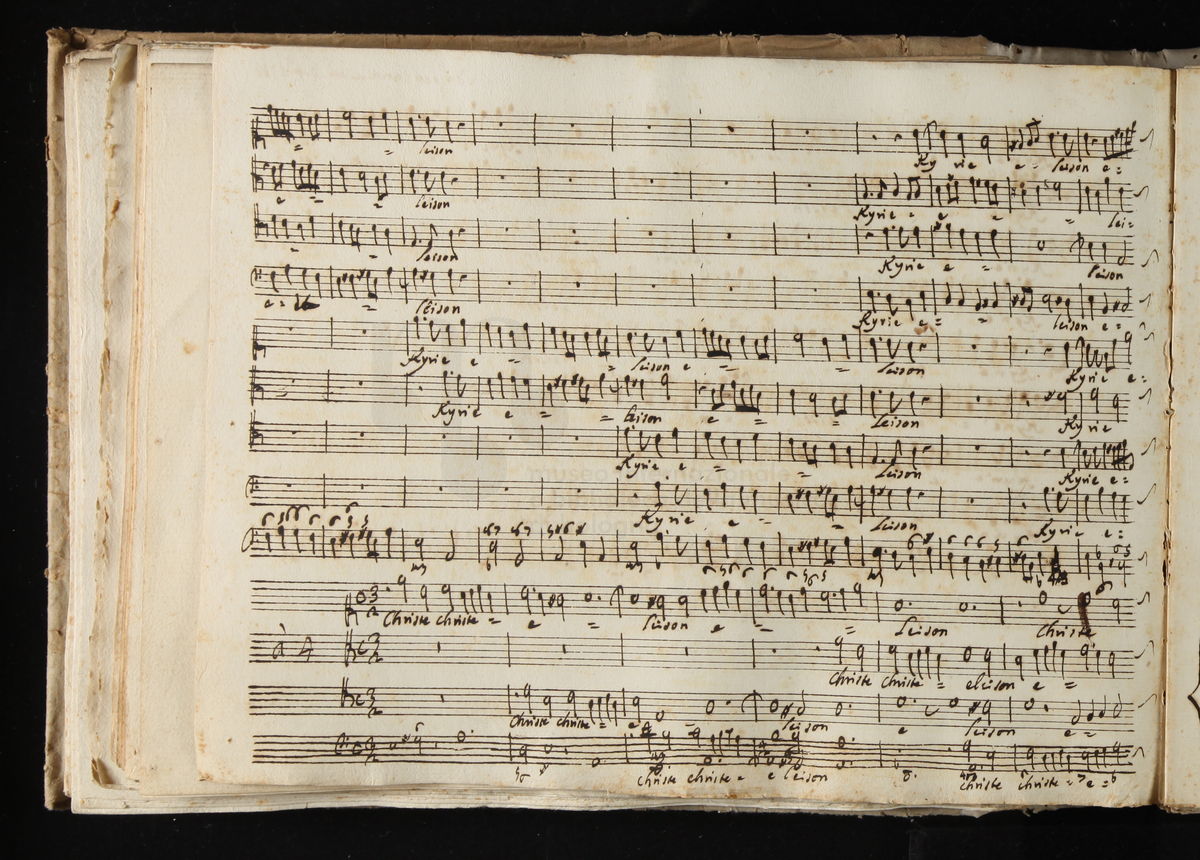 = = leison Kyrie e = leison e =
e = = leison Kyrie = e = = lei =
= = leison Kyrie e = leison
e = = leison Kyrie e = = leison e =
Kyrie e = = leison e = = leison Kyrie e =
Kyrie e = = leison e = = leison Kyrie
Kyrie e = = leison Kyrie e =
Kyrie e = = leison Kyrie e =
Christe christe = e = leison e = = Leison Christe
à 4
Christe christe = eleison e =
Christe christe = e = leison e leison e =
Christe christe = e leison christe christe = e =